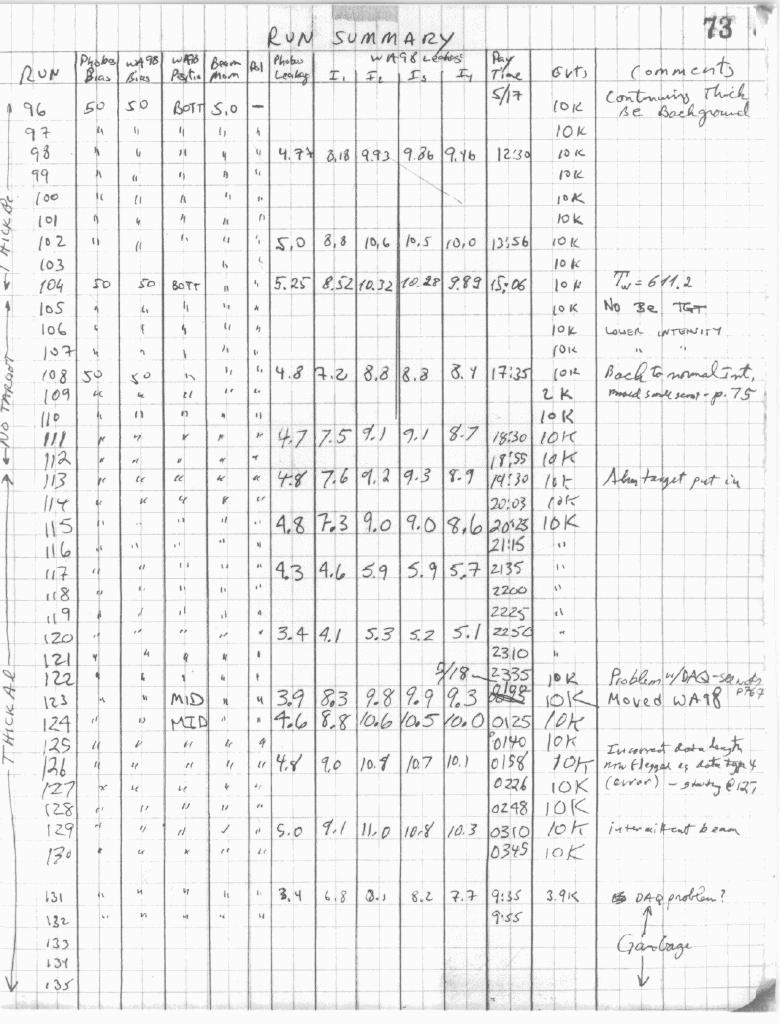 73
RUN SUMMARY
RUN Phobos Bias WA98 Bias WA98 Position Beam Mom Pol Phobos Leakag WA98 Leakag I1 I2 I3 I4 Day Time Evts Comments
5/17
96 50 50 BOTT 5.0 — 10K Continuing Thick Be Background
97 " " " " " 10K
98 " " " " " 4.77 8.18 9.93 9.86 9.46 12:30 10K
99 " " " " " 10K
100 " " " " " 10K
101 " " " " " 10K
102 " " " " " 5.0 8.8 10.6 10.5 10.0 13:56 10K
103 " " 10K
104 50 50 BOTT " " 5.25 8.52 10.32 10.28 9.89 15:06 10K Tw = 611.2
105 " " " " " 10K No Be TGT
106 " " " " " 10K LOWER INTENSITY
107 " " " " " 10K " "
108 50 50 " " " 4.8 7.2 8.8 8.8 8.4 17:35 10K Back to normal Int,
109 " " " " " 2K - p. 75
110 " " " " " 10K
111 " " " " " 4.7 7.5 9.1 9.1 8.7 18:30 10K
112 " " " " " 18:55 10K
113 " " " " " 4.8 7.6 9.2 9.3 8.9 19:30 10K Alum target put in
114 " " " " " 20:03 10K
115 " " " " " 4.8 7.3 9.0 9.0 8.6 20:25 10K
116 " " " " " 21:15 "
117 " " " " " 4.3 4.6 5.9 5.9 5.7 2135 "
118 " " " " " 2200 "
119 " " " " " 2225 "
120 " " " " " 3.4 4.1 5.3 5.2 5.1 2250 "
121 " " " " " 2310 "
122 " " " " " 5/18 2335 10K Problem w/DAQ - see notes p767
123 " " MID " " 3.9 8.3 9.8 9.9 9.3 10K Moved WA98
124 " " MID " " 4.6 8.8 10.6 10.5 10.0 0125 10K
125 " " " " " 0140 10K Incorrect data length
126 " " " " " 4.8 9.0 10.8 10.7 10.1 0158 10K now flagged as data type 4
127 " " " " " 0226 10K (error) - starting @ 127
128 " " " " " 0248 10K
129 " " " " " 5.0 9.1 11.0 10.8 10.3 0310 10K intermittent beam
130 " " " " " 0345 10K
131 " " " " " 3.4 6.8 8.1 8.2 7.7 9:35 3.9K DAQ problem?
132 " " " " " 9:55
133 Garbage
134
135
THICK Be
NO TARGET
THICK Al